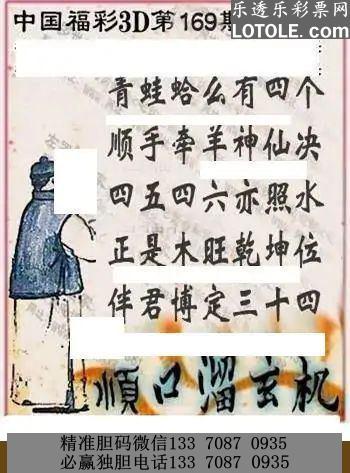 中国福彩3D第169期
乐透乐彩票网
LOTOLE.COM
青蛙蛤么有四个
顺手牵羊神仙决
四五四六亦照水
正是木旺乾坤位
伴君博定三十四
順口溜玄机
精准胆码微信133 7087 0935
必赢独胆电话133 7087 0935